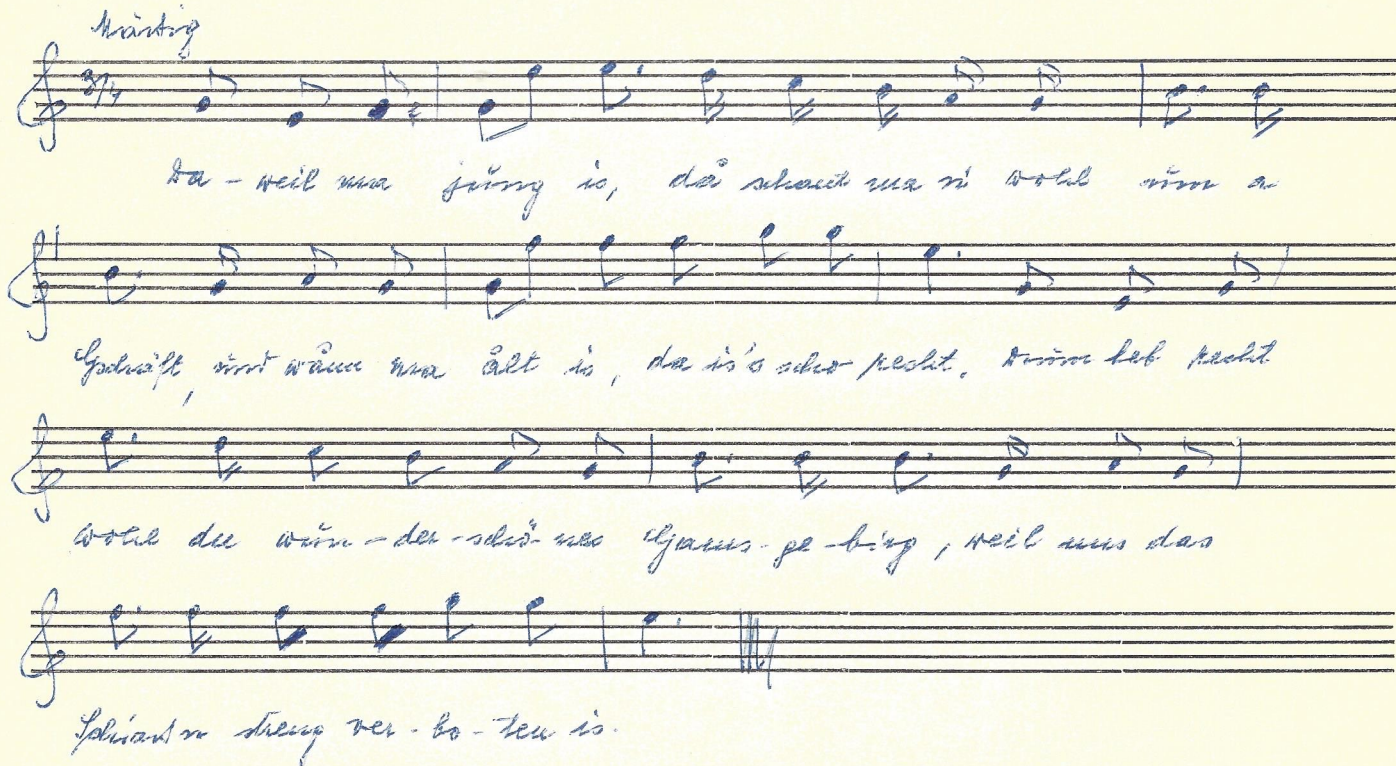 Mäßig
3/4
Da - weil ma jung is, då schaut ma si wohl um a
Gschäft, und wånn ma ålt is, da is's scho recht. Drum leb recht
wohl du wun - der - schö - nes Gams - ge - birg, weil uns das
Schiaßn streng ver - bo - ten is.